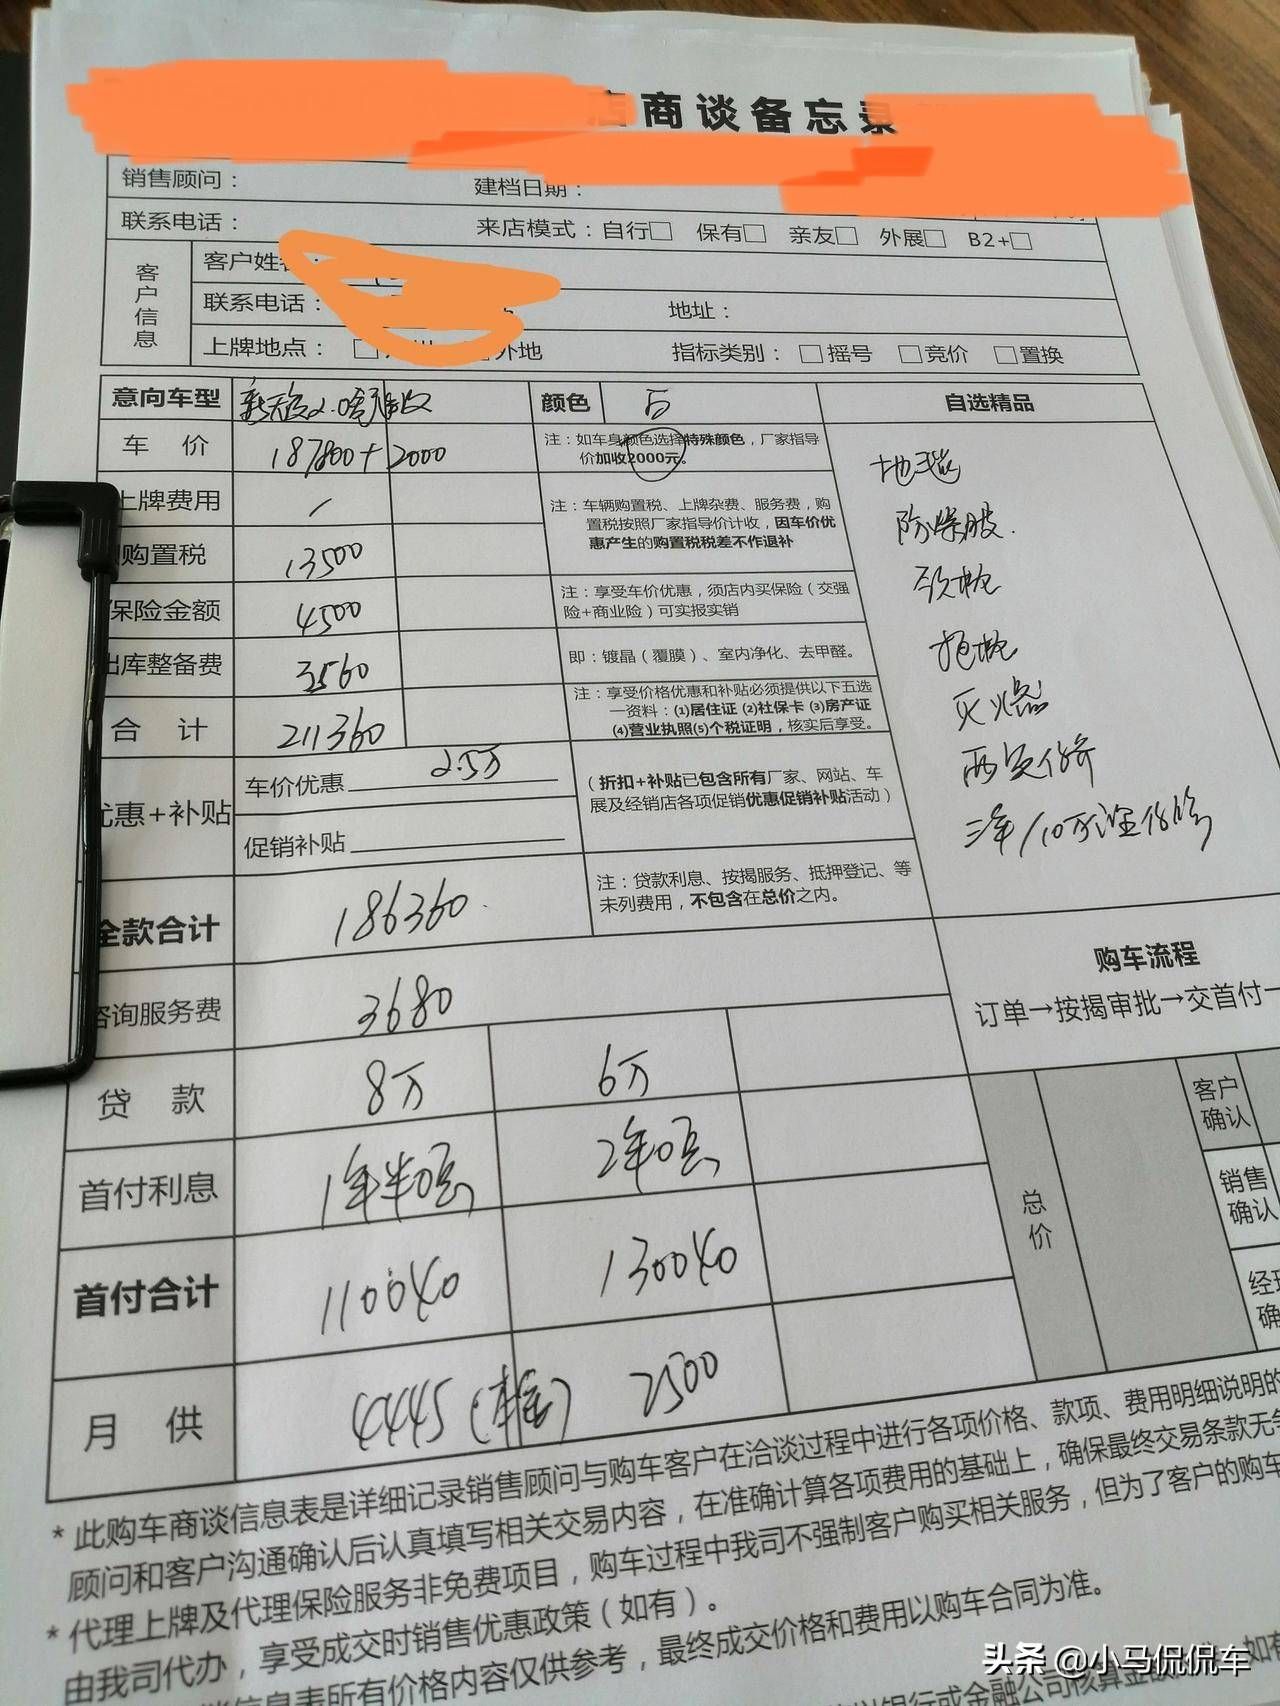 店商谈备忘录
销售顾问：
建档日期：
联系电话：
来店模式：自行□ 保有□ 亲友□ 外展□ B2+□
客户信息
客户姓名：
联系电话：
地址：
上牌地点：
外地
指标类别：□摇号 □竞价 □置换
意向车型
颜色
白
自选精品
车 价
187800+2000
注：如车身颜色选择特殊颜色，厂家指导
价加收2000元。
上牌费用
/
注：车辆购置税、上牌杂费、服务费，购
置税按照厂家指导价计收，因车价优
惠产生的购置税税差不作退补
购置税
13500
保险金额
4500
注：享受车价优惠，须店内买保险（交强
险+商业险）可实报实销
出库整备费
3560
即：镀晶（覆膜）、室内净化、去甲醛。
合 计
211360
注：享受价格优惠和补贴必须提供以下五选
一资料：(1)居住证 (2)社保卡 (3)房产证
(4)营业执照(5)个税证明，核实后享受。
优惠+补贴
车价优惠 2.5万
促销补贴
（折扣+补贴已包含所有厂家、网站、车
展及经销店各项促销优惠促销补贴活动）
地毯
防爆膜
头枕
抱枕
灭火器
全款合计
186360
注：贷款利息、按揭服务、抵押登记、等
未列费用，不包含在总价之内。
咨询服务费
3680
购车流程
订单→按揭审批→交首付→
贷 款
8万
6万
首付利息
1年半0息
2年0息
首付合计
110040
130040
月 供
4445
2500
总价
客户
确认
销售
确认
经理
确
* 此购车商谈信息表是详细记录销售顾问与购车客户在洽谈过程中进行各项价格、款项、费用明细说明的
顾问和客户沟通确认后认真填写相关交易内容，在准确计算各项费用的基础上，确保最终交易条款无
* 代理上牌及代理保险服务非免费项目，购车过程中我司不强制客户购买相关服务，但为了客户的购车
由我司代办，享受成交时销售优惠政策（如有）。
信息表所有价格内容仅供参考，最终成交价格和费用以购车合同为准。
头条 @小马侃侃车